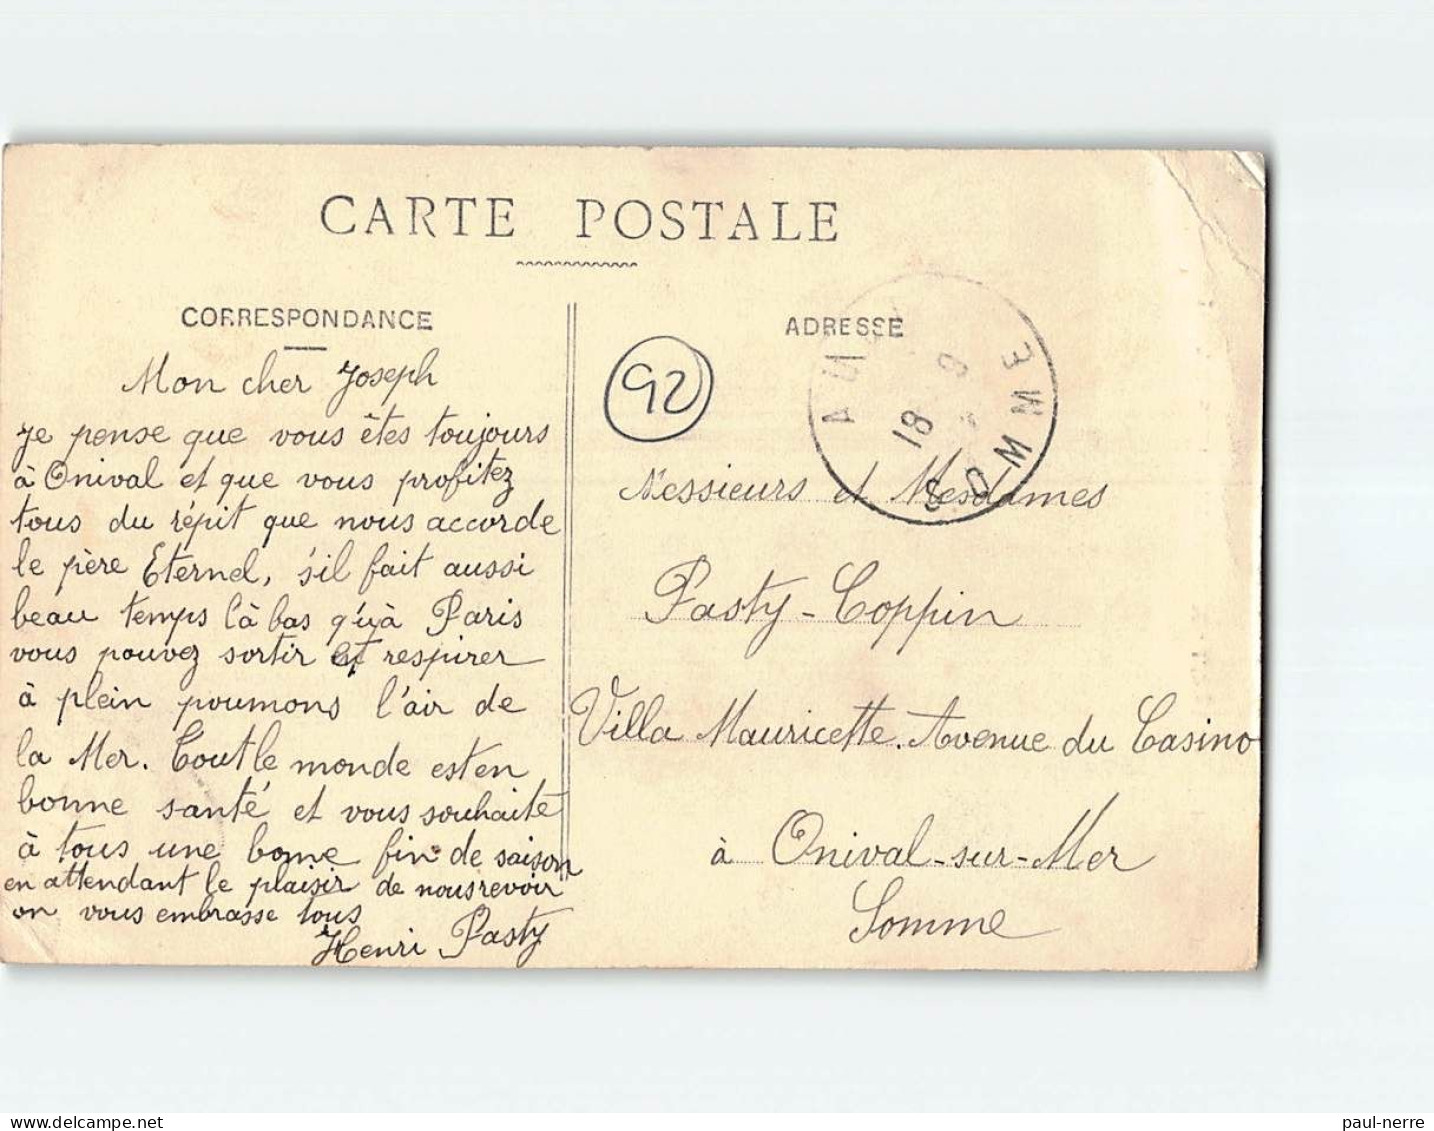 CARTE POSTALE
CORRESPONDANCE
Mon cher Joseph
Je pense que vous êtes toujours
à Onival et que vous profitez
tous du répit que nous accorde
le père Eternel, s'il fait aussi
beau temps là bas q'uà Paris
vous pouvez sortir et respirer
à plein poumons l'air de
la Mer. Tout le monde est en
bonne santé et vous souhaite
à tous une bonne fin de saison
en attendant le plaisir de nous revoir
on vous embrasse tous
Henri Pasty
92
ADRESSE
18 9
SOMME
Messieurs et Mesdames
Pasty-Coppin
Villa Mauricette. Avenue du Casino
à Onival-sur-Mer
Somme
paul-nerre